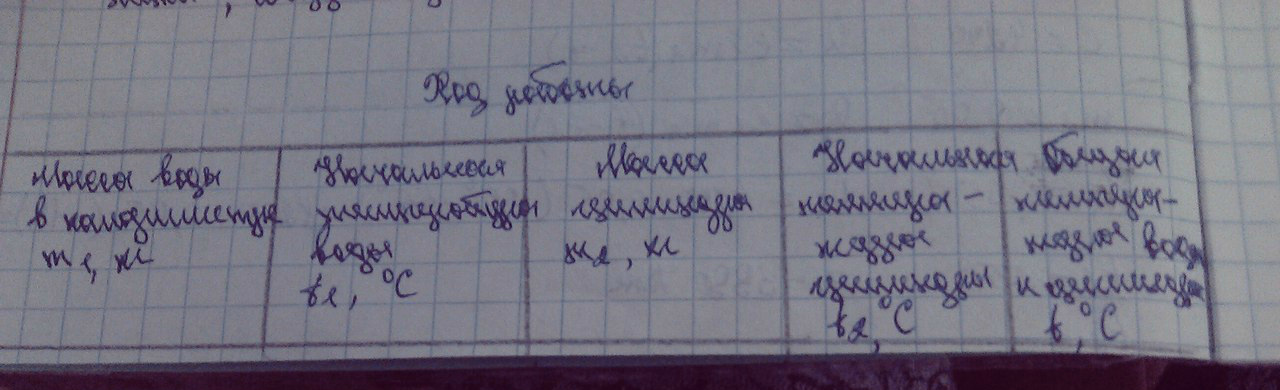 Ход работы
Масса воды
в калориметре
m₁, кг
Начальная
температура
воды
t₁, °C
Масса
цилиндра
m₂, кг
Начальная
темпера-
тура
цилиндра
t₂, °C
Общая
темпера-
тура воды
и цилиндра
t, °C